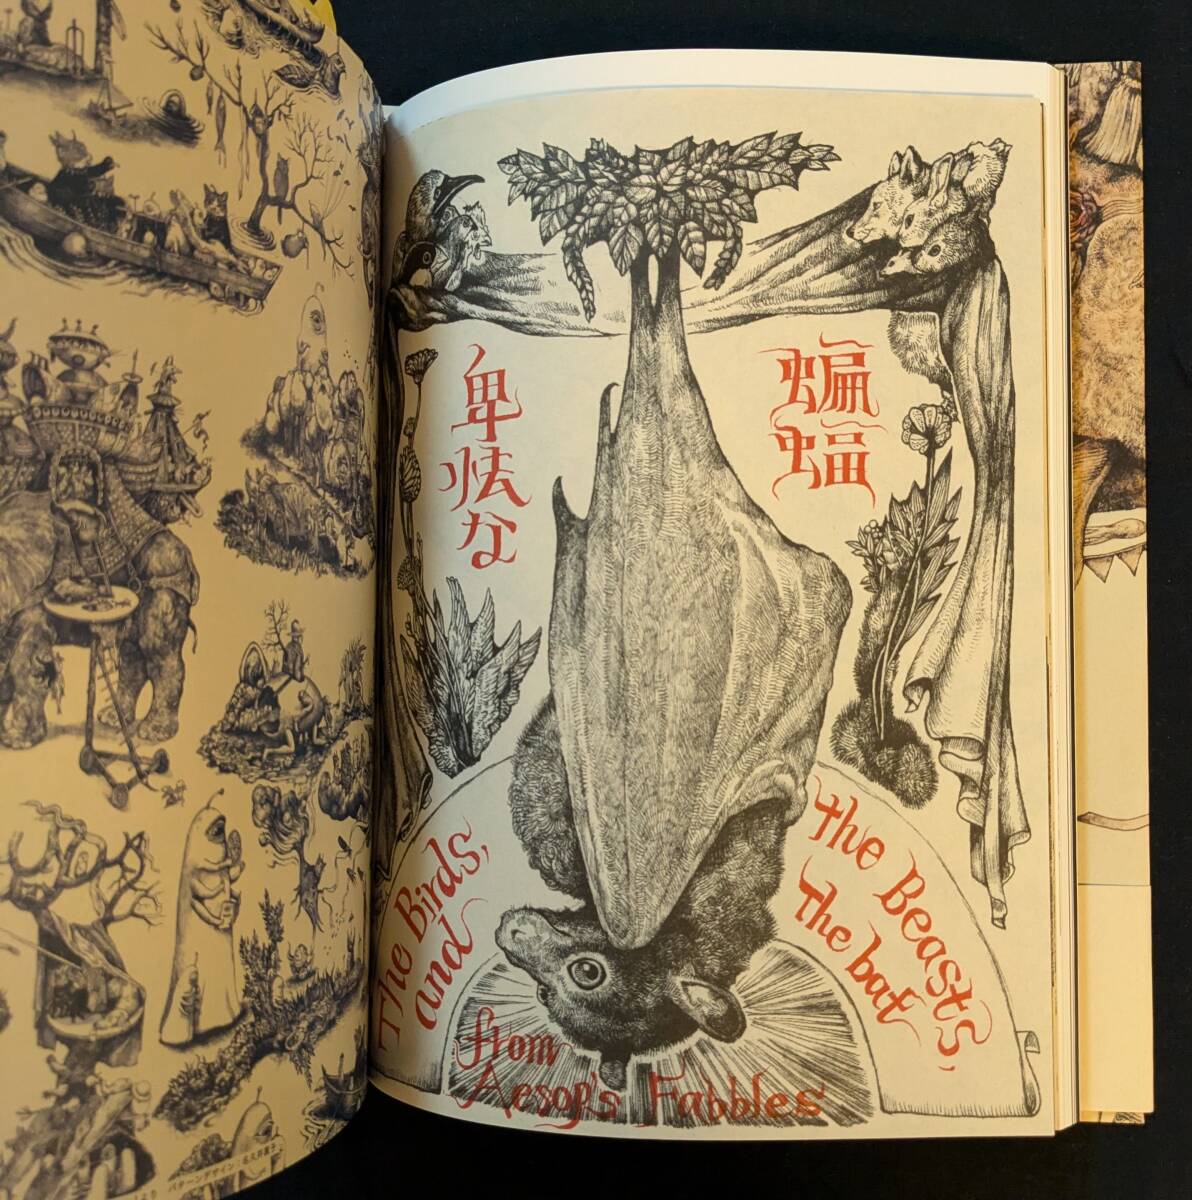 卑怯な
蝙蝠
The Birds, the Beasts,
and The bat
from
Aesop's Fabbles
より パターンデザイン：名久井直子